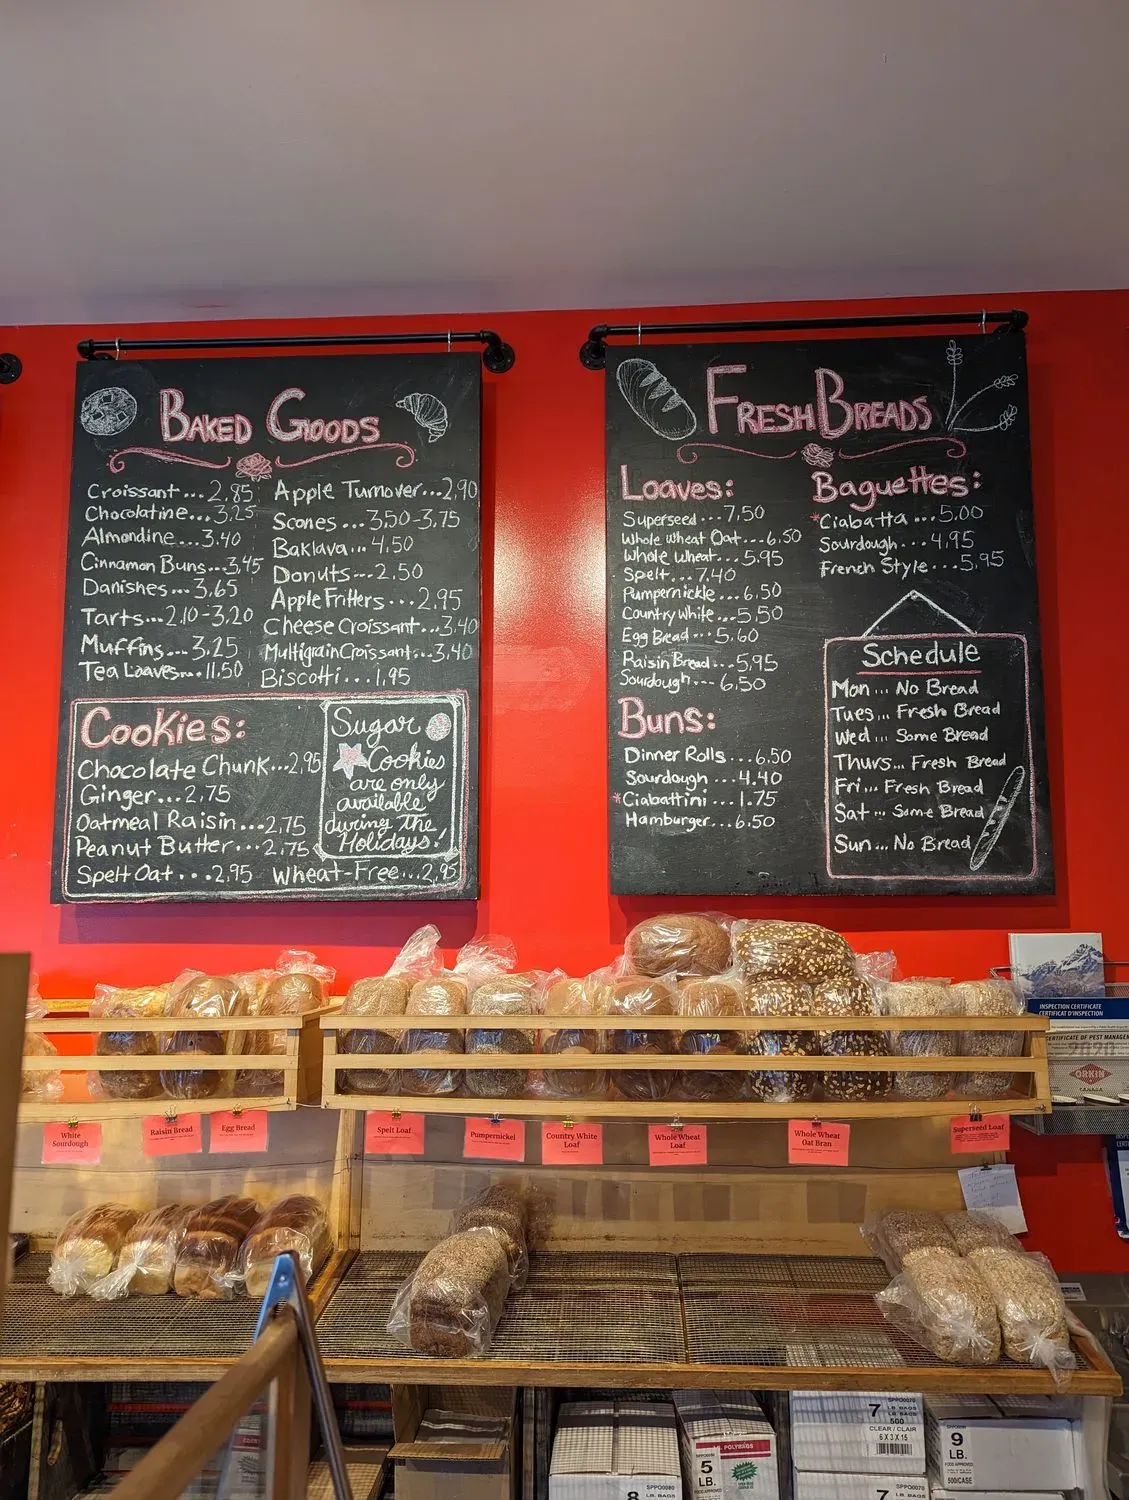 BAKED GOODS
Croissant...2.85
Chocolatine...3.25
Almondine...3.40
Cinnamon Buns...3.45
Danishes...3.65
Tarts...2.10-3.20
Muffins...3.25
Tea Loaves...11.50
Apple Turnover...2.90
Scones...3.50-3.75
Baklava...4.50
Donuts...2.50
Apple Fritters...2.95
Cheese Croissant...3.40
Multigrain Croissant...3.40
Biscotti...1.95
Cookies:
Chocolate Chunk...2.95
Ginger...2.75
Oatmeal Raisin...2.75
Peanut Butter...2.75
Spelt Oat...2.95
Wheat-Free...2.95
Sugar
Cookies
are only
available
during the
Holidays!
FRESH BREADS
Loaves:
Superseed...7.50
Whole Wheat Oat...6.50
Whole Wheat...5.95
Spelt...7.40
Pumpernickle...6.50
Country White...5.50
Egg Bread...5.60
Raisin Bread...5.95
Sourdough...6.50
Buns:
Dinner Rolls...6.50
Sourdough...4.40
*Ciabattini...1.75
Hamburger...6.50
Baguettes:
*Ciabatta...5.00
Sourdough...4.95
French Style...5.95
Schedule
Mon... No Bread
Tues... Fresh Bread
Wed... Some Bread
Thurs... Fresh Bread
Fri... Fresh Bread
Sat... Some Bread
Sun... No Bread
White
Sourdough
Raisin Bread
Egg Bread
Spelt Loaf
Pumpernickel
Country White
Loaf
Whole Wheat
Loaf
Whole Wheat
Oat Bran
Superseed Loaf
INSPECTION CERTIFICATE
CERTIFICAT D'INSPECTION
CERTIFICATE OF PEST MANAGEM
ORKIN
CANADA
SPPO0080
8 LB. BAGS
POLYBAGS
5
LB.
SPPO0070
7 LB. BAGS
500
CLEAR / CLAIR
6 X 3 X 15
SPPO0070
7 LB. BAGS
9
LB.
FOOD APPROVED
500/CASE